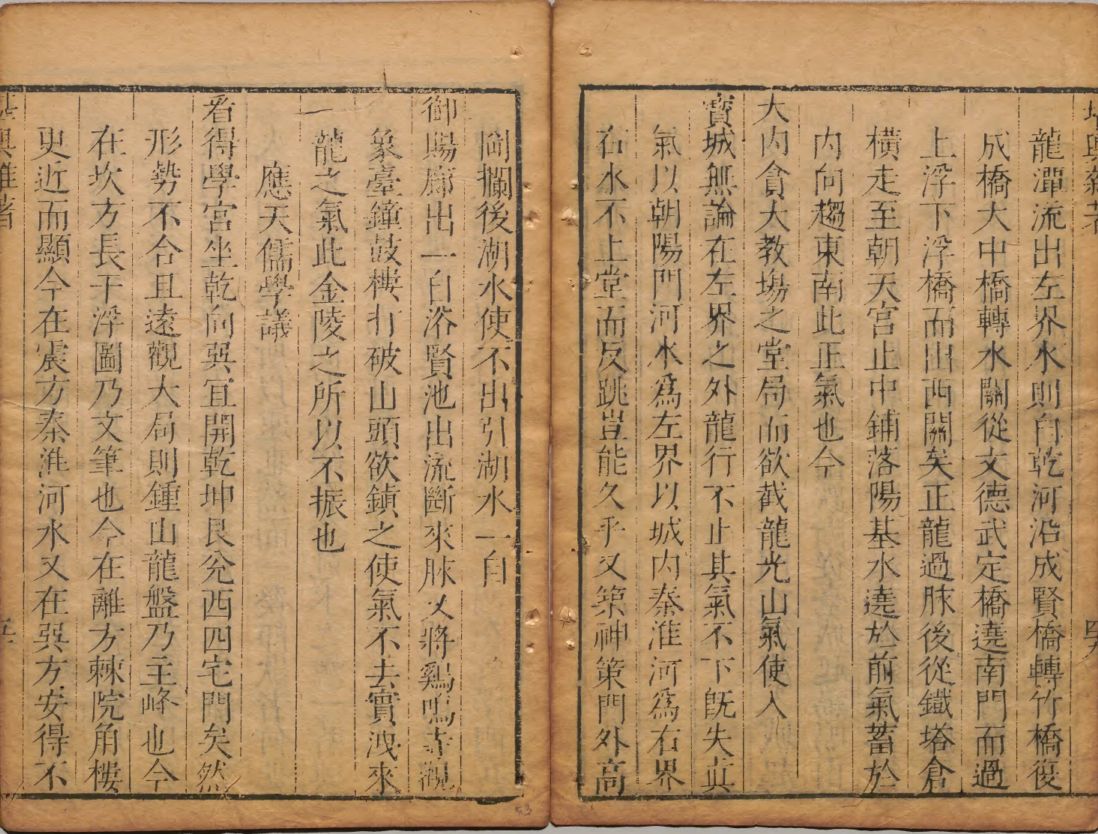 堪輿雜著
龍潭流出左界水則自乾河沿成賢橋轉竹橋復
成橋大中橋轉水關從文德武定橋遶南門而過
上浮下浮橋而出西關矣正龍過脉後從鐵塔倉
橫走至朝天宮止中鋪落陽基水遶於前氣蓄於
内向趨東南此正氣也今
大内貪大教場之堂局而欲截龍光山氣使入
寶城無論在左界之外龍行不止其氣不下旣失真
氣以朝陽門河水爲左界以城内秦淮河爲右界
右水不上堂而反跳豈能久乎又築神策門外高
岡攔後湖水使不出引湖水一自
御賜廊出一自浴賢池出流斷來脉又將鷄鳴寺觀
象臺鐘鼓樓打破山頭欲鎮之使氣不去實洩來
龍之氣此金陵之所以不振也
一
應天儒學議
看得學宮坐乾向巽宜開乾坤艮兌西四宅門矣然
形勢不合且遠觀大局則鍾山龍盤乃主峰也今
在坎方長干浮圖乃文筆也今在離方棘院角樓
更近而顯今在震方秦淮河水又在巽方安得不
堪輿雜著